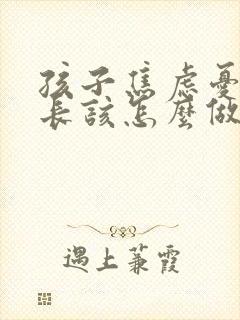 孩子焦虑憂
長該怎麼做
遇上蒹霞